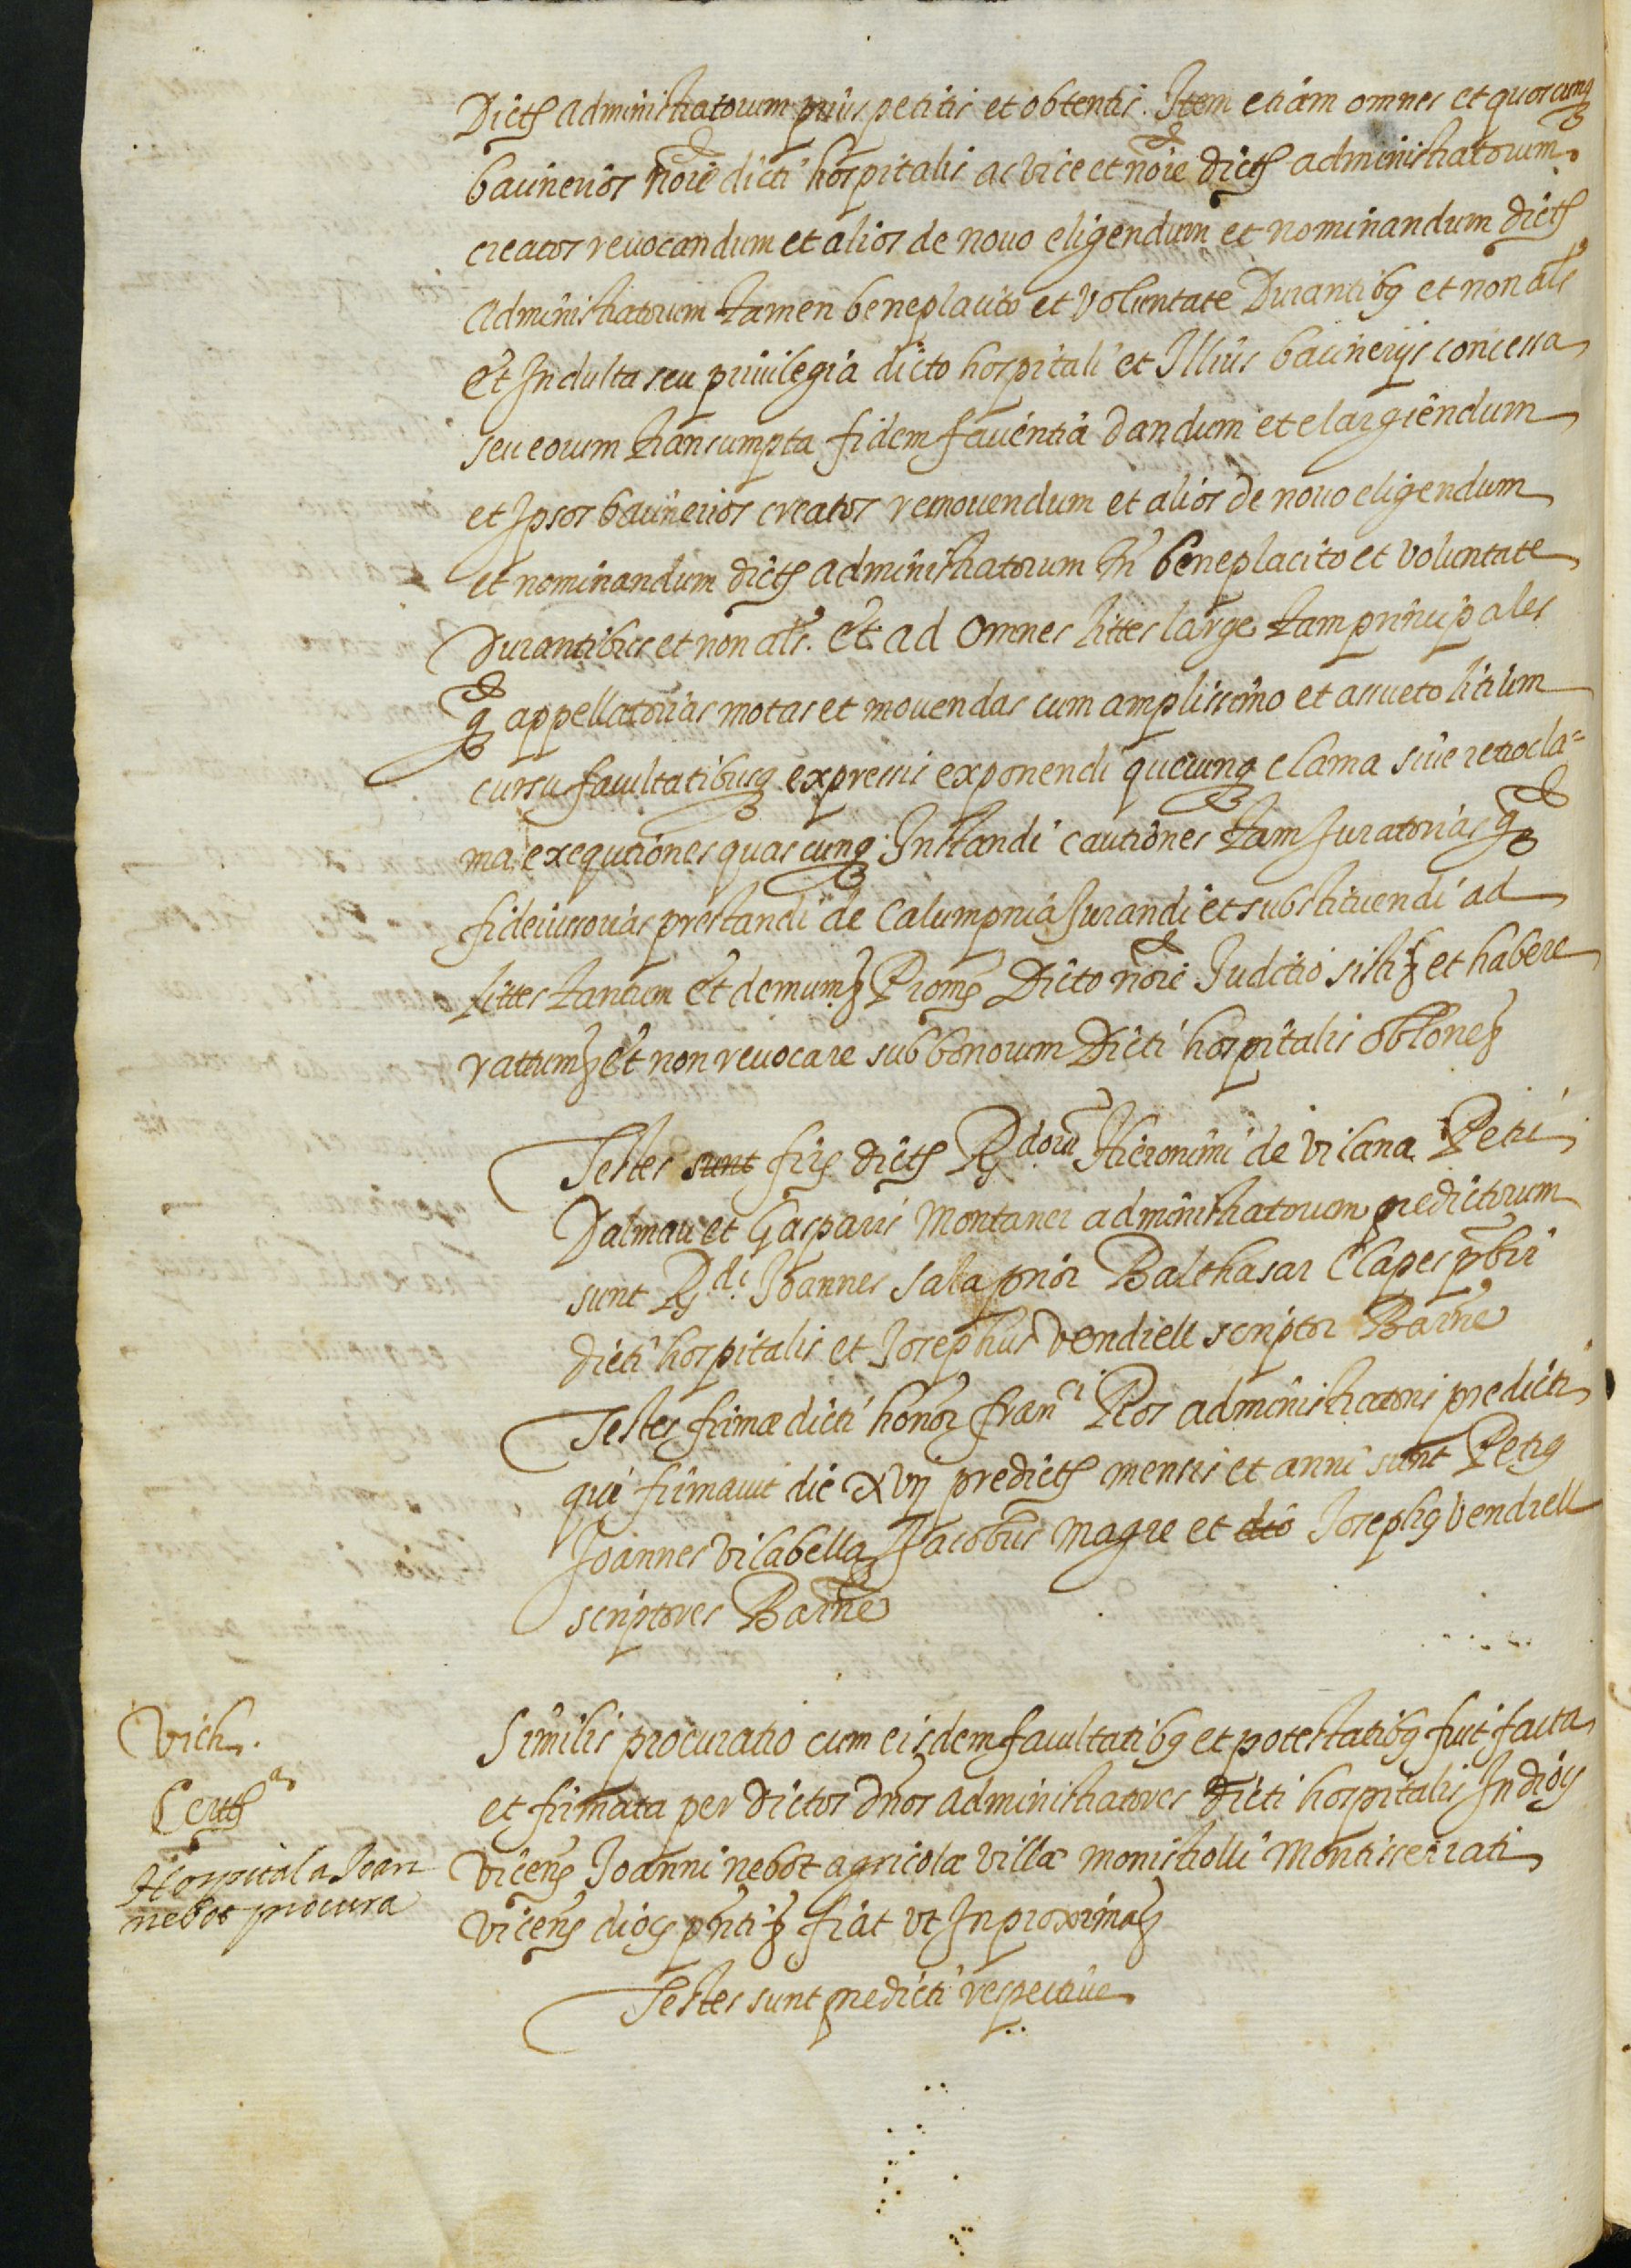 Dictꝭ administratorum prius petitis et obtentis. Item etiam omnes et quoscunqꝫ
bacinerios noīe dicti hospitalis ac vice et noīe dictꝭ administratorum
creatos revocandum et alios de novo eligendum et nominandum dictꝭ
administratorum tamen beneplacito et voluntate Durantibꝰ et non alꝭ
Et Indulta seu privilegia dicto hospitali et Illius bacinerijs concessa
seu eorum transumpta fidem facientia dandum et elargiendum
et Ipsos baciñerios creatos removendum et alios de novo eligendum
et nominandum dictꝭ administratorum tñ beneplacito et voluntate
Durantibus et non alꝭ. Et ad omnes littes large tam principales
qꝫ appellatorias motas et movendas cum amplissimo et assueto litium
cursu facultatibusqꝫ expressis exponendi quecunqꝫ clama sive retrocla=
ma, exequtiones quascunqꝫ Instandi cautiones tam Juratorias qꝫ
fideiussorias prestandi de Calumpnia Jurandi et substituendi ad
littes tantum Et demumꝫ Promꝭ Dicto noīe Juditio sistiꝫ et habere
ratumꝫ et non revocare sub bonorum Dicti hospitalis oblōneꝫ
Testes sunt firꝭ dictꝭ Rdorū Hieronimi de vilana Petri
Dalmau et Gasparis Montaner administratorum predictorum
sunt Rdi Joannes Sala prior Balthasar Clapes pr̄bri
dicti hospitalis et Josephus vendrell scriptor Barne
Testes firmæ dicti honoꝝ franci Ros administratoris predicti
qui firmavit die xvij predictꝭ mensis et anni sunt Petrꝰ
Joannes vilabella Jacobus Magre et dō Josephꝰ Vendrell
scriptores Barne
Vich.
Certꝭ
Hospital a Joan
nebot procura
Similis procuratio cum eisdem facultatibꝰ et potestatibꝰ fuit facta
et firmata per dictos dños administratores dicti hospitalis In diocꝭ
vicenꝭ Joanni nebot agricolæ villæ monistrolli Montisserrati
vicenꝭ diocꝭ pñtiꝫ fiat ut In proximaꝫ
Testes sunt predicti respective